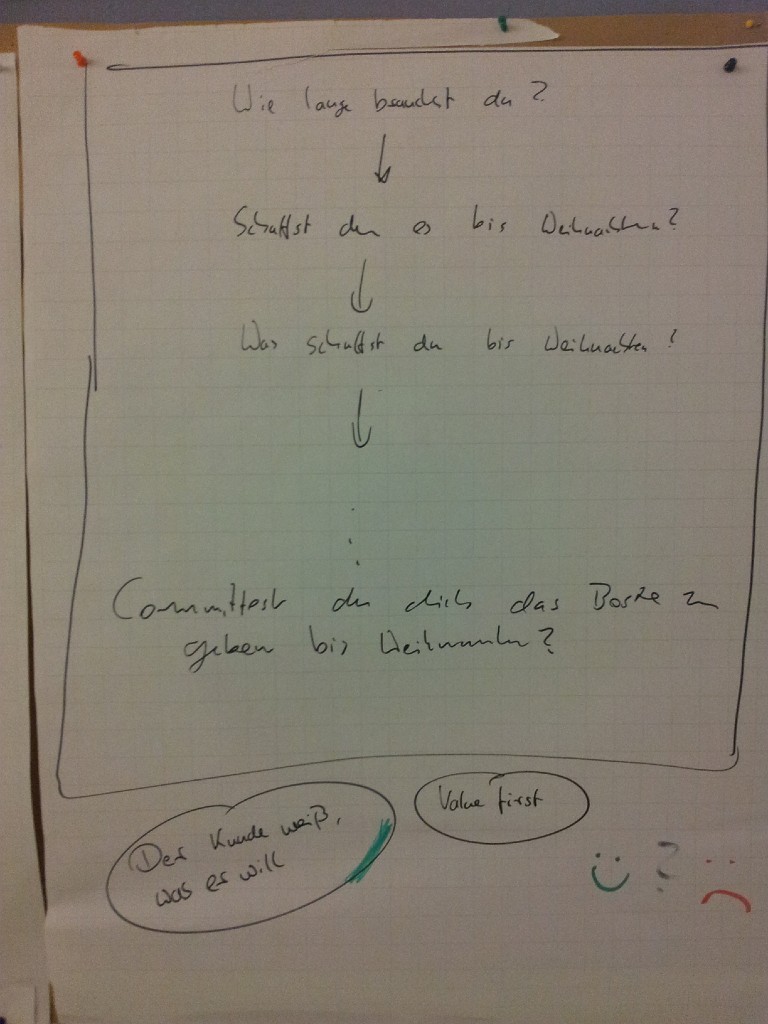 Wie lange brauchst du?
Schaffst du es bis Weihnachten?
Was schaffst du bis Weihnachten?
Committest du dich das Beste zu
geben bis Weihnachten?
Der Kunde weiß,
was er will
Value first
?